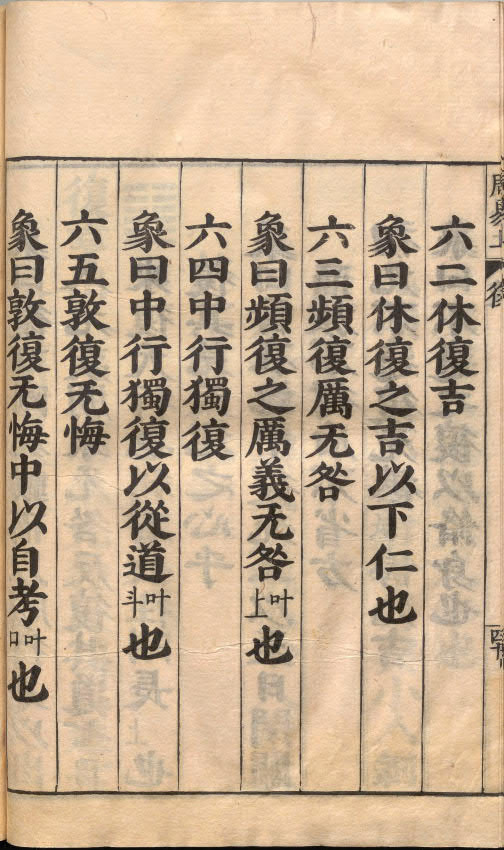 六二休復吉
象曰休復之吉以下仁也
六三頻復厲无咎
象曰頻復之厲義无咎叶上也
六四中行獨復
象曰中行獨復以從道叶斗也
六五敦復无悔
象曰敦復无悔中以自考叶口也